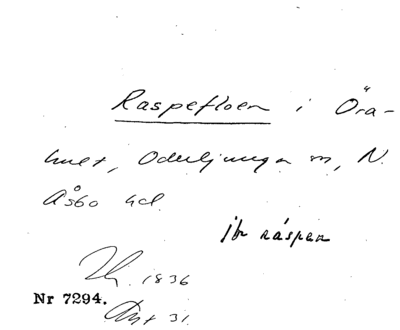 Raspefloen i Öra-
hult, Oderljunga sn, N.
Åsbo hd.
jbr ráspen
1836
Nr 7294.
31